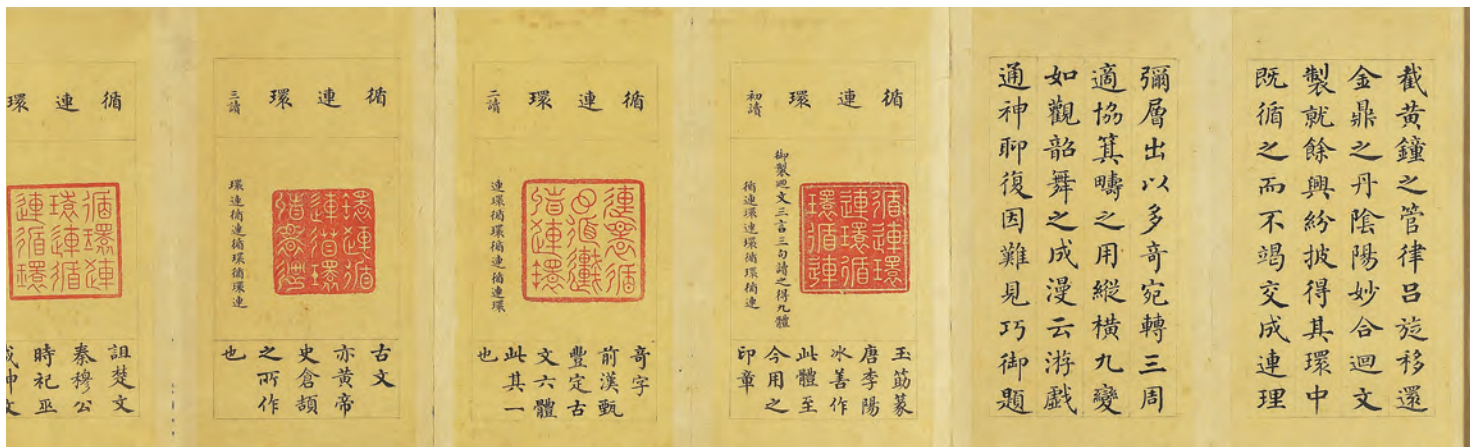 截黄鐘之管律呂旋移還
金鼎之丹陰陽妙合迴文
製就餘興紛披得其環中
既循之而不竭交成連理
彌層出以多奇宛轉三周
適協箕疇之用縱橫九變
如觀韶舞之成漫云游戲
通神聊復因難見巧御題
循連環
初讀
御製迴文三言三句讀之得九體
循連環連環循環循連
循連環
連環循
環循連
玉筯篆
唐李陽
冰善作
此體至
今用之
印章
循連環
二讀
連環循環循連循連環
連環循
環循連
循連環
奇字
前漢甄
豐定古
文六體
此其一
也
循連環
三讀
環連循連循環循環連
環連循
連循環
循環連
古文
亦黄帝
史倉頡
之所作
也
循連環
循環連
環連循
連循環
詛楚文
秦穆公
時祀巫
咸神文